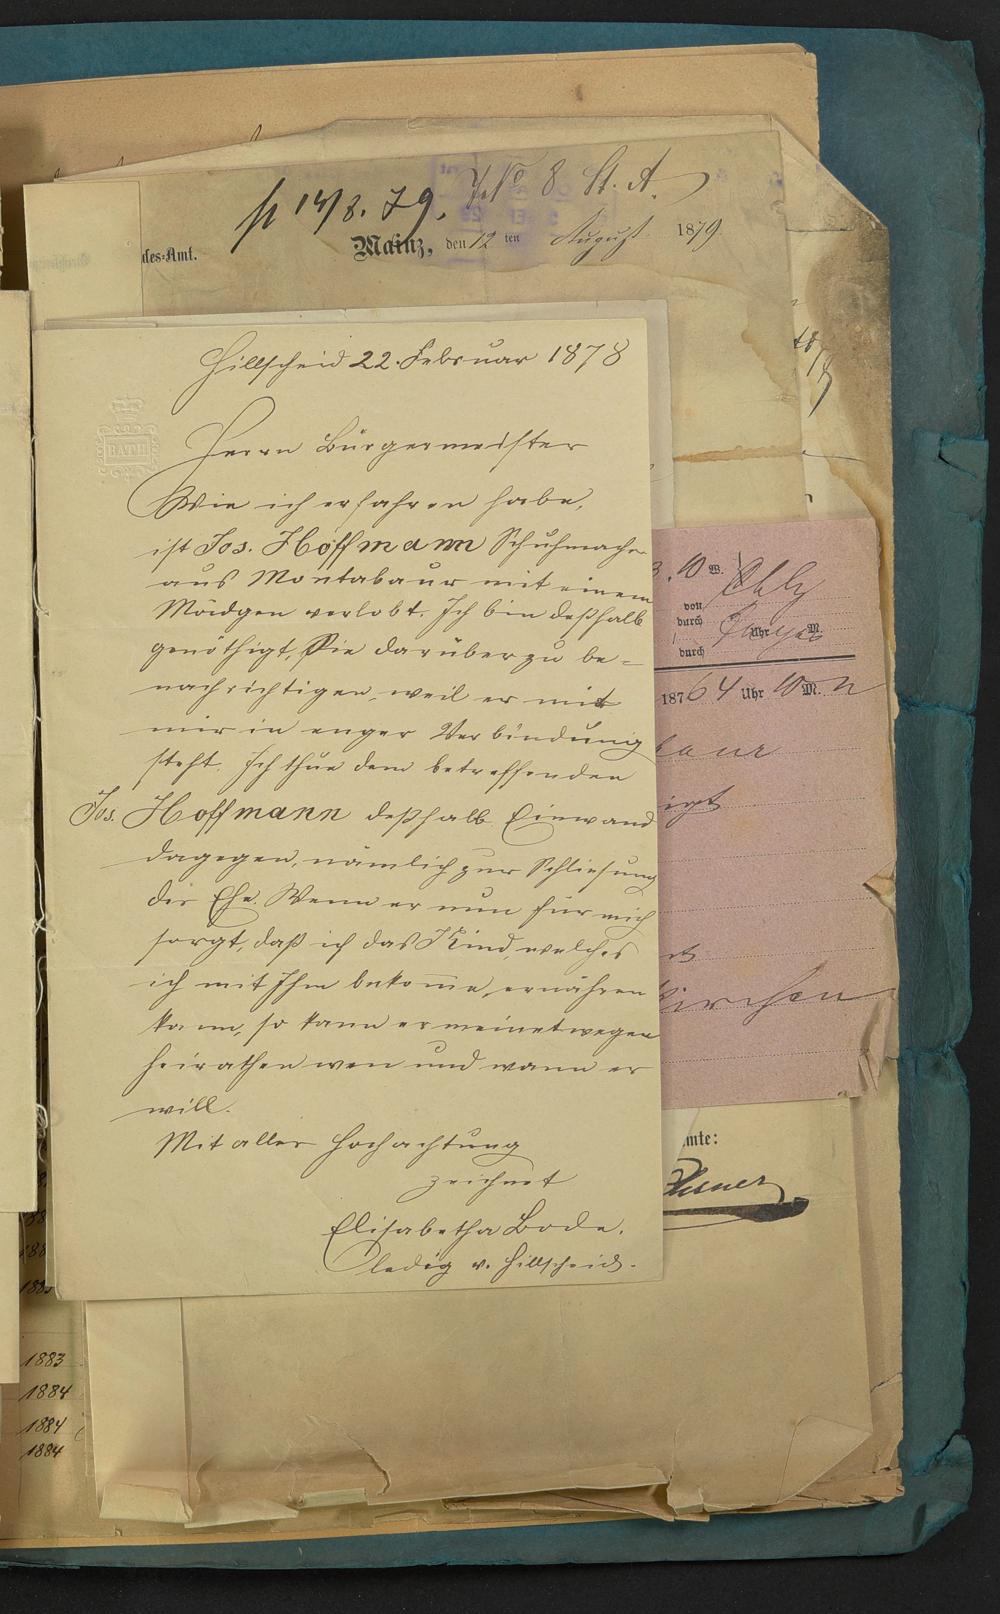 p 14/8. 79. No 8 St. A.
des-Amt.
Mainz, den 12 ten August 1879
Hillscheid 22. Februar 1878
BATH
Herrn Bürgermeister
Wie ich erfahren habe,
ist Jos. Hoffmann Schuhmacher
aus Montabaur mit einem
Mädgen verlobt. Ich bin deßhalb
genöthigt, Sie darüber zu be-
nachrichtigen, weil er mit
mir in enger Verbindung
steht. Ich thue dem betreffenden
Jos. Hoffmann deßhalb Einwand
dagegen, nämlich zur Schliesung
der Ehe. Wenn er nun für mich
sorgt, daß ich das Kind, welches
ich mit Ihm bekome, ernähren
kann, so kann er meinetwegen
heirathen wen und wann er
will.
Mit aller Hochachtung
zeichnet
Elisabetha Bode.
ledig v. Hillscheid.
10 M.
von
durch
Uhr M.
durch
1876 4 Uhr 10 M.
aur
igt
kirchen
amte:
1883
1884
1884
1884